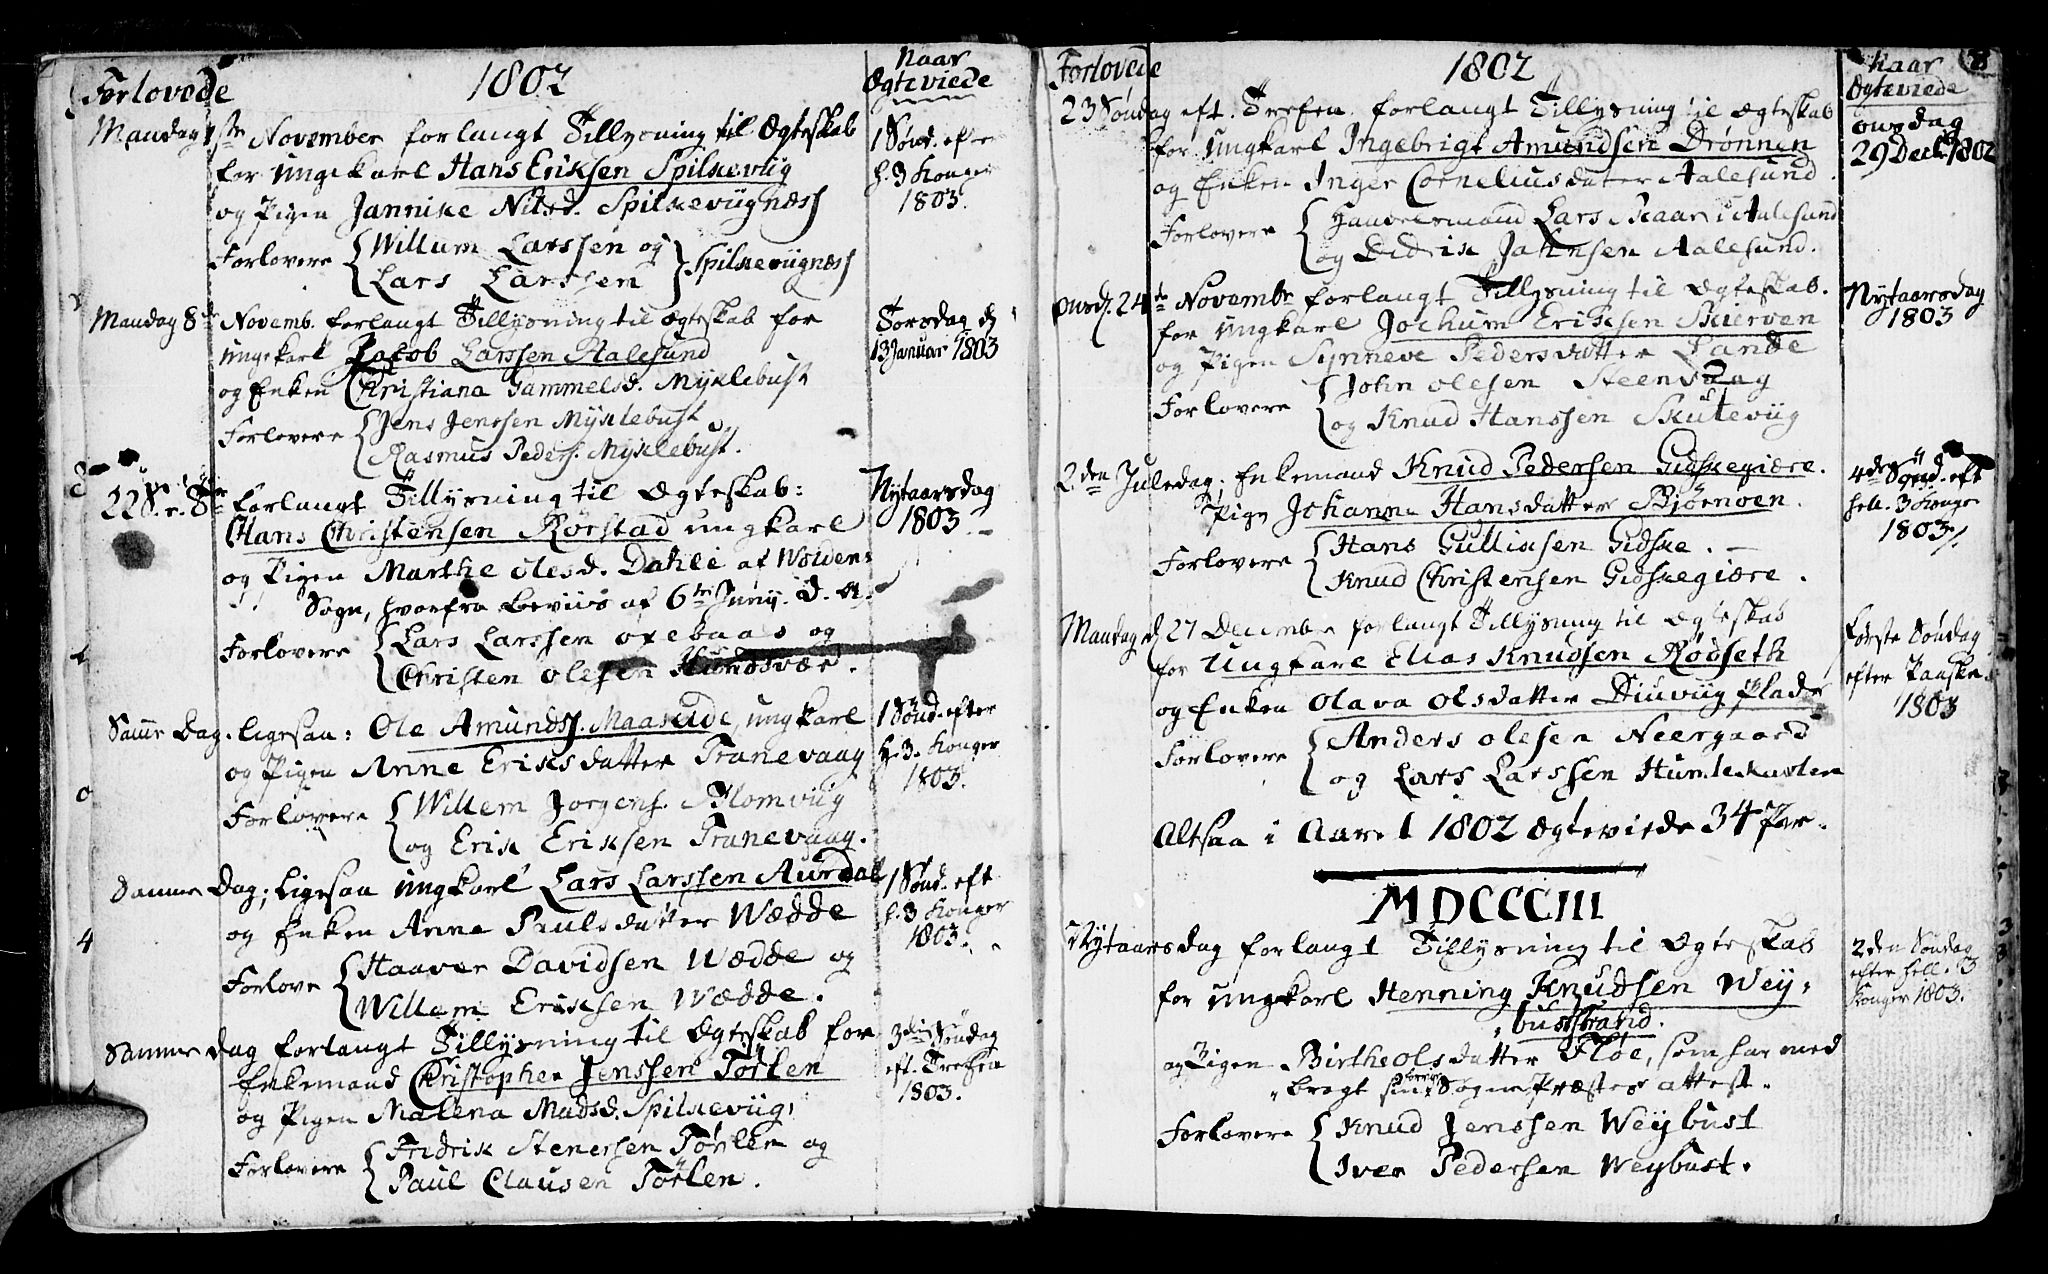 Forlovede
1802
Naar
Ægteviede
Mandag 1ste November forlangt Tillysning til Ægteskab
for Ungekarl Hans Eriksen Spilkeviig
og Pigen Jannike Nilsd. Spilkeviignæss
Forlovere Willum Larssen og
Lars Larssen Spilkeviignæss
1 Sönd. eft
h. 3 Konger
1803.
Mandag 8de Novemb. forlangt Tillysning til Ægteskab for
Ungekarl Jacob Larssen Aalesund
og Enken Christiana Gammelsd. Myklebust
Forlovere Jens Jenssen Myklebust
Rasmus Peders. Myklebust.
Torsdag d
13 Januar 1803
22 S. e. forlangt Tillysning til Ægteskab:
Hans Christensen Rörstad ungkarl
og Pigen Marthe Olesd. Dahle af Woldens
Sogn, hvorfra beviis af 6te Junij. d. A.
Forlovere Lars Larssen Oxebaas og
Christen Olesen Hundsvær.
Nytaarsdag
1803
Samme Dag. ligesaa: Ole Amunds. Maaseide, ungkarl
og Pigen Anne Eriksdatter Tranevaag
Forlovere Willem Jörgens. Blomviig
og Erik Eriksen Tranevaag.
1 Sönd. efter
H. 3. Konger
1803.
Samme Dag; Ligesaa Ungkarl Lars Larssen Aurdal
og Enken Anne Paulsdatter Wædde
Forlove Haaver Davidsen Wædde og
Willem Eriksen Wædde.
1 Sönd. eft
h. 3 Konger
1803.
Samme Dag forlangt Tillysning til Ægteskab for
Enkemand Christopher Jenssen Törlen
og Pigen Malena Madsd. Spilkeviig,
Forlovere Fridrik Stenersen Törlen og
Paul Clausen Törlen.
3die Söndag
eft. Trefen
1803.
Forlovede
1802
Naar
Ægteviede
23 Söndag eft. Trefen. forlangt Tillysning til Ægteskab
for Ungkarl Ingebrigt Amundsen Drönnen
og Enken Inger Corneliusdatter Aalesund.
Forlovere Lars Skaar i Aalesund
og Didrik Jahnsen Aalesund.
onsdag
29 Decbr 1802
onsd. 24te Novembr forlangt Tillysning til Ægteskab.
for Ungkarl Jochum Eriksen Skierven
og Pigen Synneve Pedersdatter Sande
Forlovere John Olesen Steensdag
og Knud Hanssen Skuteviig
Nytaarsdag
1803
2den Juledag. Enkemand Knud Pedersen Gidskegiære.
Pige Johanne Hansdatter Björnöen.
Forlovere Hans Gulliksen Gidske.
Knud Christensen Gidskegiære.
4de Sönd. eft
hell. 3 Konger
1803.
Mandag d 27 Decembr forlangt Tillysning til Ægteskab
for Ungkarl Elias Knudsen Rödseth
og Enken Olava Olsdatter Diuviig Plads
Forlovere Anders Olesen Neergaard
og Lars Larssen Humlekasten
Förste Söndag
efter Paaske
1803
Altsaa i Aaret 1802 Ægteviede 34 Par.
MDCCCIII
Nytaarsdag forlangt Tillysning til Ægteskab
for Ungekarl Henning Knudsen Wey-
buststrand.
og Pigen Birthe Olsdatter Flöe, som har med
bragt sin forrige Sogne Præstes attest.
Forlovere Knud Jenssen Weybust
Iver Pedersen Weybust.
2den Söndag
efter hell. 3
Konger 1803.